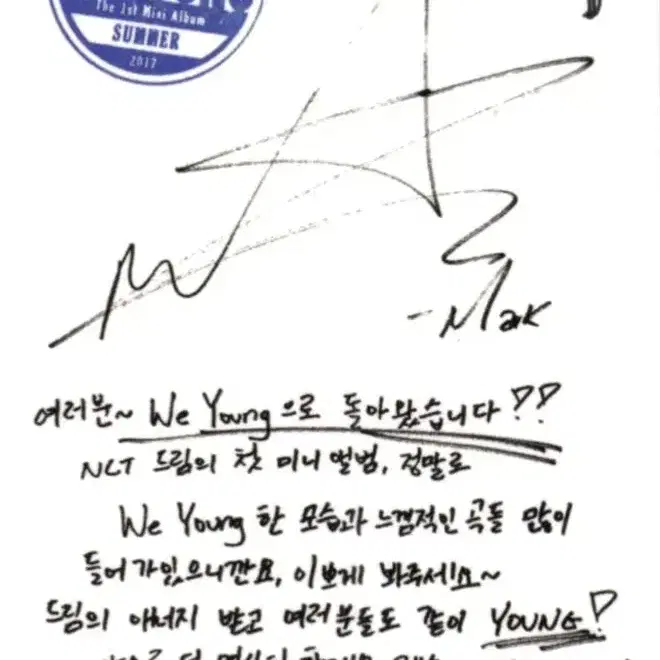 The 1st Mini Album
SUMMER
2017
-Mark
여러분~ We Young으로 돌아왔습니다!!
NCT 드림의 첫 미니 앨범, 정말로
We Young 한 모습과 느낌적인 곡들 많이
들어가있으니깐요, 이쁘게 봐주세요~
드림의 에너지 받고 여러분들도 같이 YOUNG!